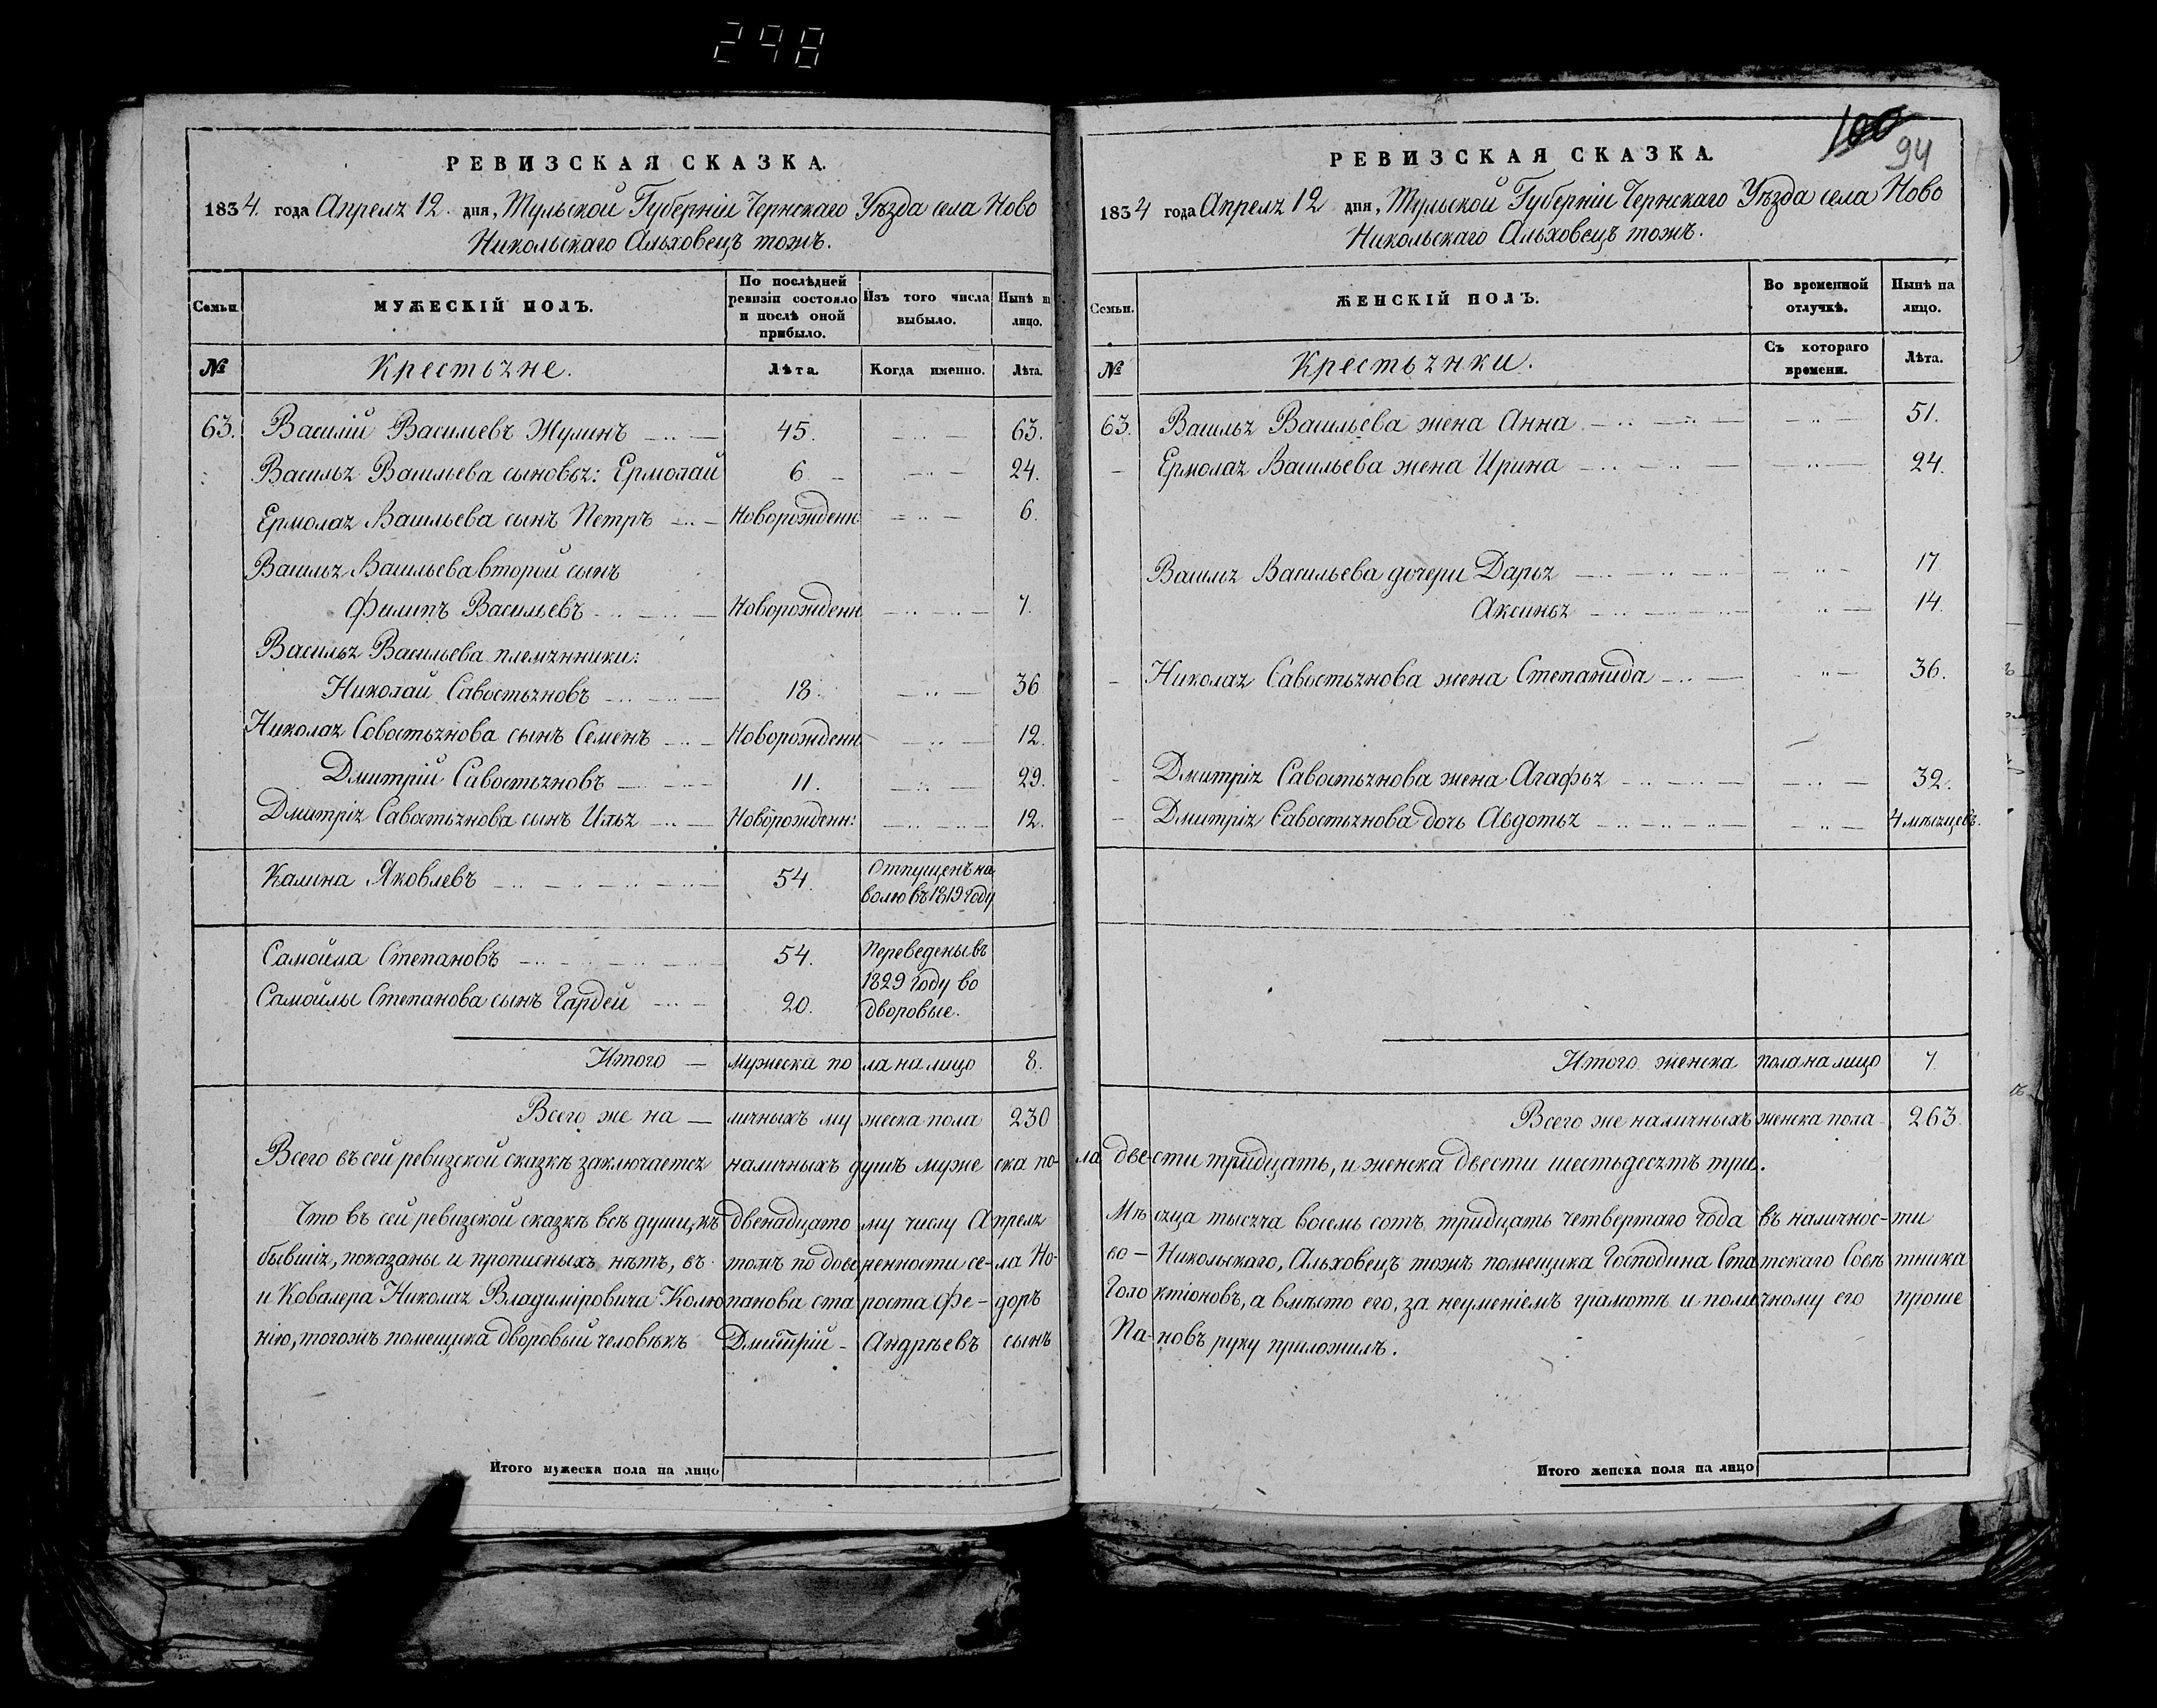 298
РЕВИЗСКАЯ СКАЗКА.
1834. года Апреля 12. дня, Тульской Губерніи Чернскаго Уѣзда села Ново
Никольскаго Альховецъ тожъ.
Семьи. МУЖЕСКІЙ ПОЛЪ. По послѣдней ревизіи состояло и послѣ оной прибыло. Изъ того числа выбыло. Нынѣ на лицо.
№ Крестьяне. Лѣта. Когда именно. Лѣта.
63. Василій Васильевъ Жулинъ 45. 63.
Василья Васильева сыновья: Ермолай 6 24.
Ермолая Васильева сынъ Петръ Новорожденн 6.
Василья Васильева второй сынъ
Филипъ Васильевъ Новорожденн 7.
Василья Васильева племянники:
Николай Савостьяновъ 18. 36
Николая Совостьянова сынъ Семенъ Новорожденн 12.
Дмитрій Савостьяновъ 11. 29.
Дмитрія Савостьянова сынъ Илья Новорожденн: 12.
Калина Яковлевъ 54. Отпущенъ на
волю въ 1819 году
Самойла Степановъ 54. Переведены въ
1829 году во
Самойлы Степанова сынъ Гардей 20. дворовые.
Итого — мужеска пола на лицо 8.
Всего же наличныхъ мужеска пола 230
Всего въ сей ревизской сказкѣ заключается наличныхъ душъ мужеска по-
Что въ сей ревизской сказкѣ всѣ души, къ двенадцатому числу Апреля
бывшія, показаны и прописныхъ нѣтъ, въ томъ по довѣренности села Но-
и Ковалера Николая Владиміровича Колюпанова староста Фе-доръ
нію, тогожъ помещика дворовый человѣкъ Дмитрій Андрѣевъ сынъ
Итого мужеска пола на лицо
100
94
РЕВИЗСКАЯ СКАЗКА.
1834 года Апреля 12 дня, Тульской Губерніи Чернскаго Уѣзда села Ново
Никольскаго Альховецъ тожъ.
Семьи. ЖЕНСКІЙ ПОЛЪ. Во временной отлучкѣ. Нынѣ на лицо.
№ Крестьянки. Съ котораго времени. Лѣта.
63. Василья Васильева жена Анна 51.
Ермолая Васильева жена Ирина 24.
Василья Васильева дочери Дарья 17
Аксинья 14.
Николая Савостьянова жена Степанида 36.
Дмитрія Савостьянова жена Агафья 32.
Дмитрія Савостьянова дочь Авдотья 4 мѣсяцевъ.
Итого женска пола на лицо 7.
Всего же наличныхъ женска пола 263.
ла двести тридцать, и женска двести шестьдесятъ три.
Мѣсяца тысяча восемь сотъ тридцать четвертаго года въ наличнос-ти
во-Никольскаго, Альховецъ тожъ помещика Господина Статскаго Совѣтника
Голо ктіоновъ, а вмѣсто его, за неуменіемъ грамотѣ и поличному его проше
Пановъ руку приложилъ.
Итого женска пола на лицо